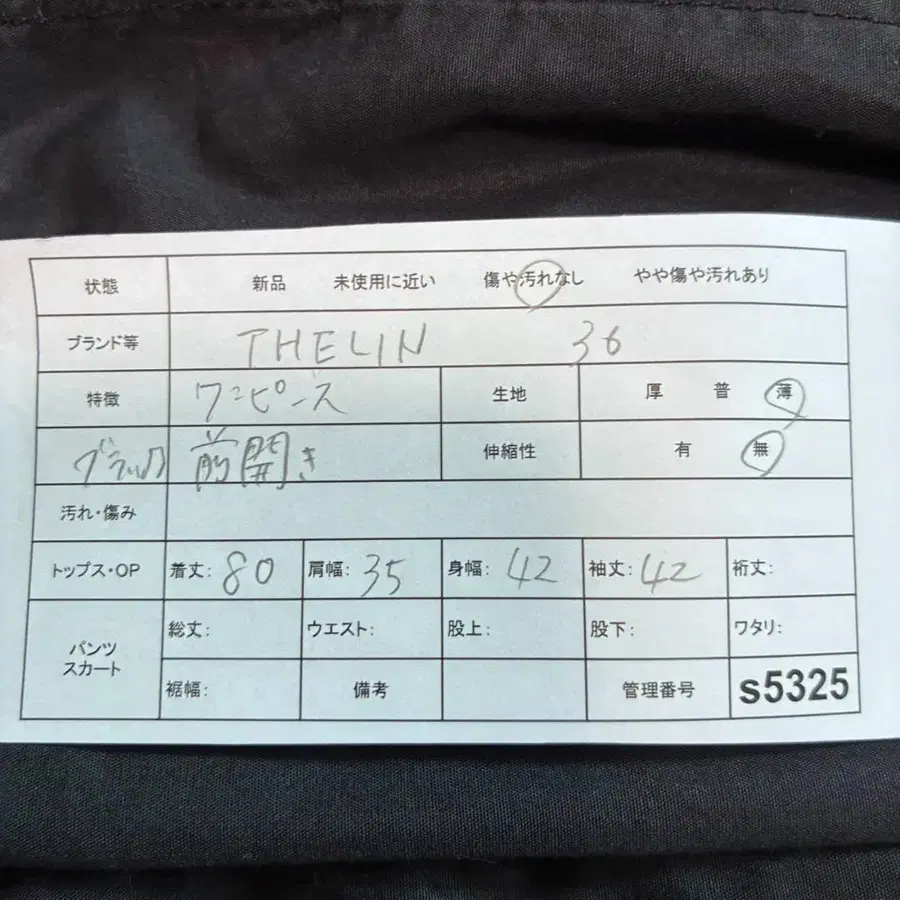 状態 新品 未使用に近い 傷や汚れなし やや傷や汚れあり
ブランド等 THELIN 36
特徴 ワンピース 生地 厚 普 薄
ブラック 前開き 伸縮性 有 無
汚れ・傷み
トップス・OP 着丈: 80 肩幅: 35 身幅: 42 袖丈: 42 裄丈:
パンツ
スカート
総丈: ウエスト: 股上: 股下: ワタリ:
裾幅: 備考 管理番号 s5325